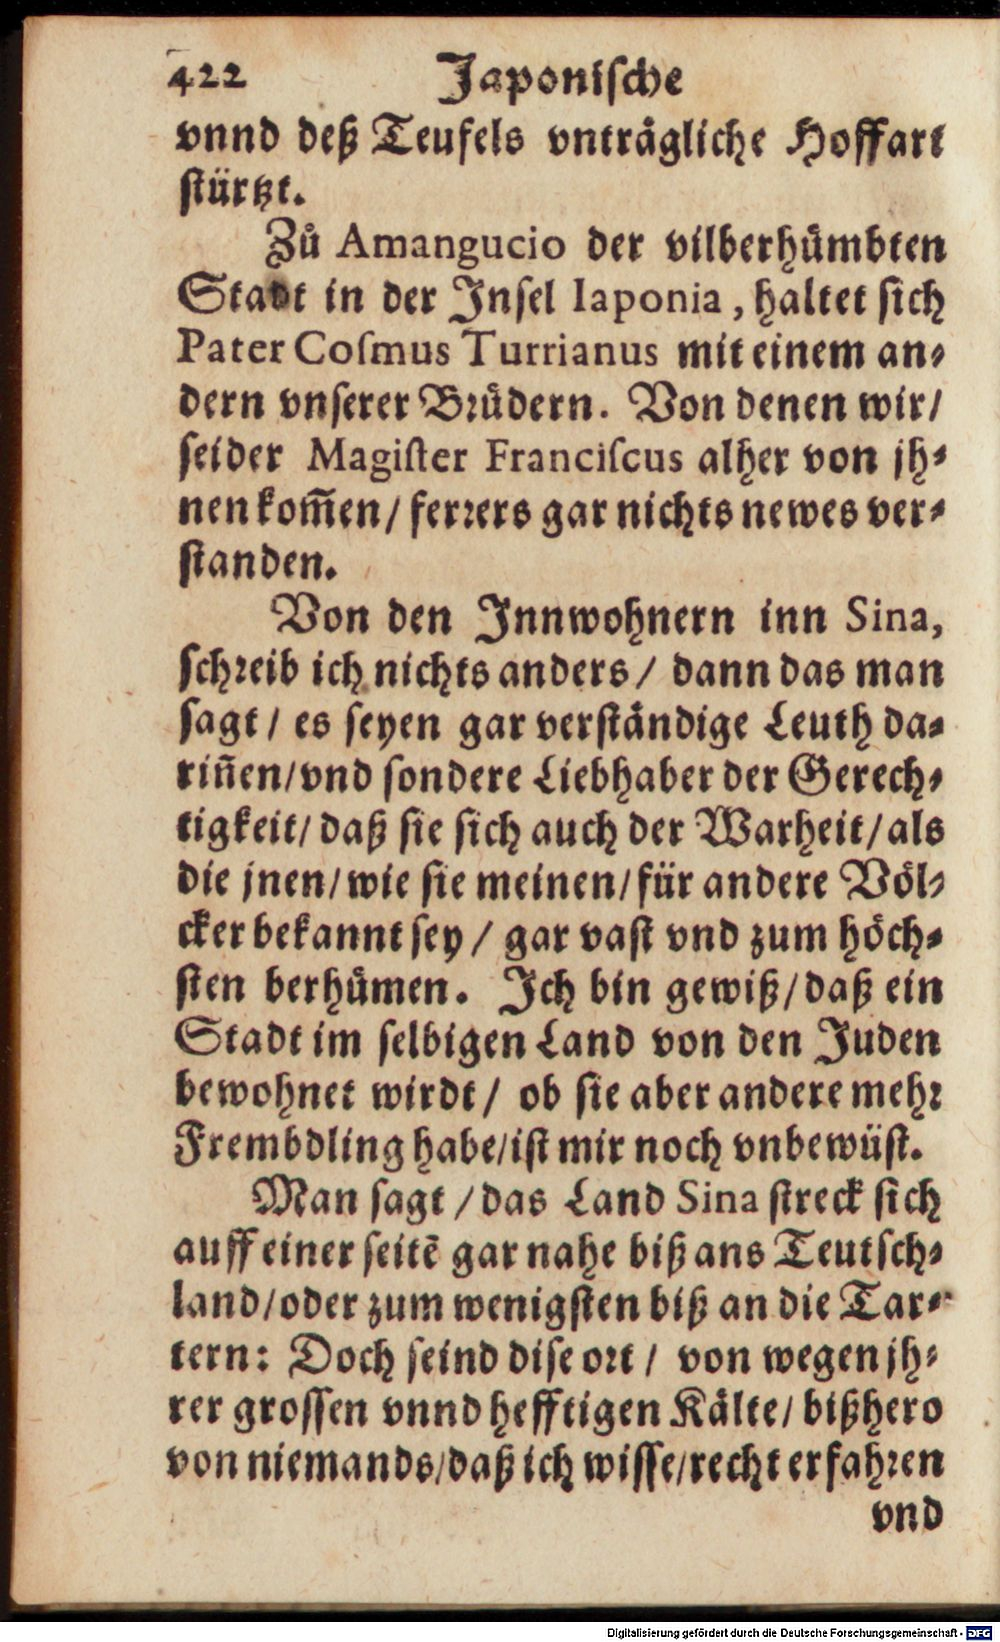 422 Japoniſche
vnnd deß Teufels vnträgliche Hoffart
ſtürtzt.
Zů Amangucio der vilberhuͤmbten
Stadt in der Inſel Iaponia, haltet ſich
Pater Coſmus Turrianus mit einem an-
dern vnſerer Bruͤdern. Von denen wir/
ſeider Magiſter Franciſcus alher von jh-
nen kom̃en/ ferrers gar nichts newes ver-
ſtanden.
Von den Innwohnern inn Sina,
ſchreib ich nichts anders/ dann das man
ſagt/ es ſeyen gar verſtaͤndige Leuth da-
riñen/ vnd ſondere Liebhaber der Gerech-
tigkeit/ daß ſie ſich auch der Warheit/ als
die jnen/ wie ſie meinen/ für andere Voͤl-
cker bekannt ſey/ gar vaſt vnd zum hoͤch-
ſten berhuͤmen. Ich bin gewiß/ daß ein
Stadt im ſelbigen Land von den Juden
bewohnet wirdt/ ob ſie aber andere mehr
Frembdling habe/ iſt mir noch vnbewüſt.
Man ſagt/ das Land Sina ſtreck ſich
auff einer ſeitē gar nahe biß ans Teutſch-
land/ oder zum wenigſten biß an die Tar-
tern: Doch ſeind diſe ort/ von wegen jh-
rer groſſen vnnd hefftigen Kaͤlte/ bißhero
von niemands/ daß ich wiſſe/ recht erfahren
vnd
Digitalisierung gefördert durch die Deutsche Forschungsgemeinschaft - DFG